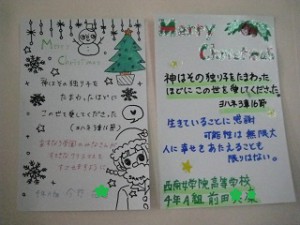 Merry
Christmas
神はその独り子を
たまわったほどに
この世を愛してくださった
(ヨハネ3章16節)
のみなさんが
クリスマスを
Merry
Christmas
神はその独り子をたまわった
ほどにこの世を愛してくださった
ヨハネ3章16節
生きていることに感謝
可能性は無限大
人に幸せをあたえることも
限りはない。
西南女学院高等学校
4年4組 前田